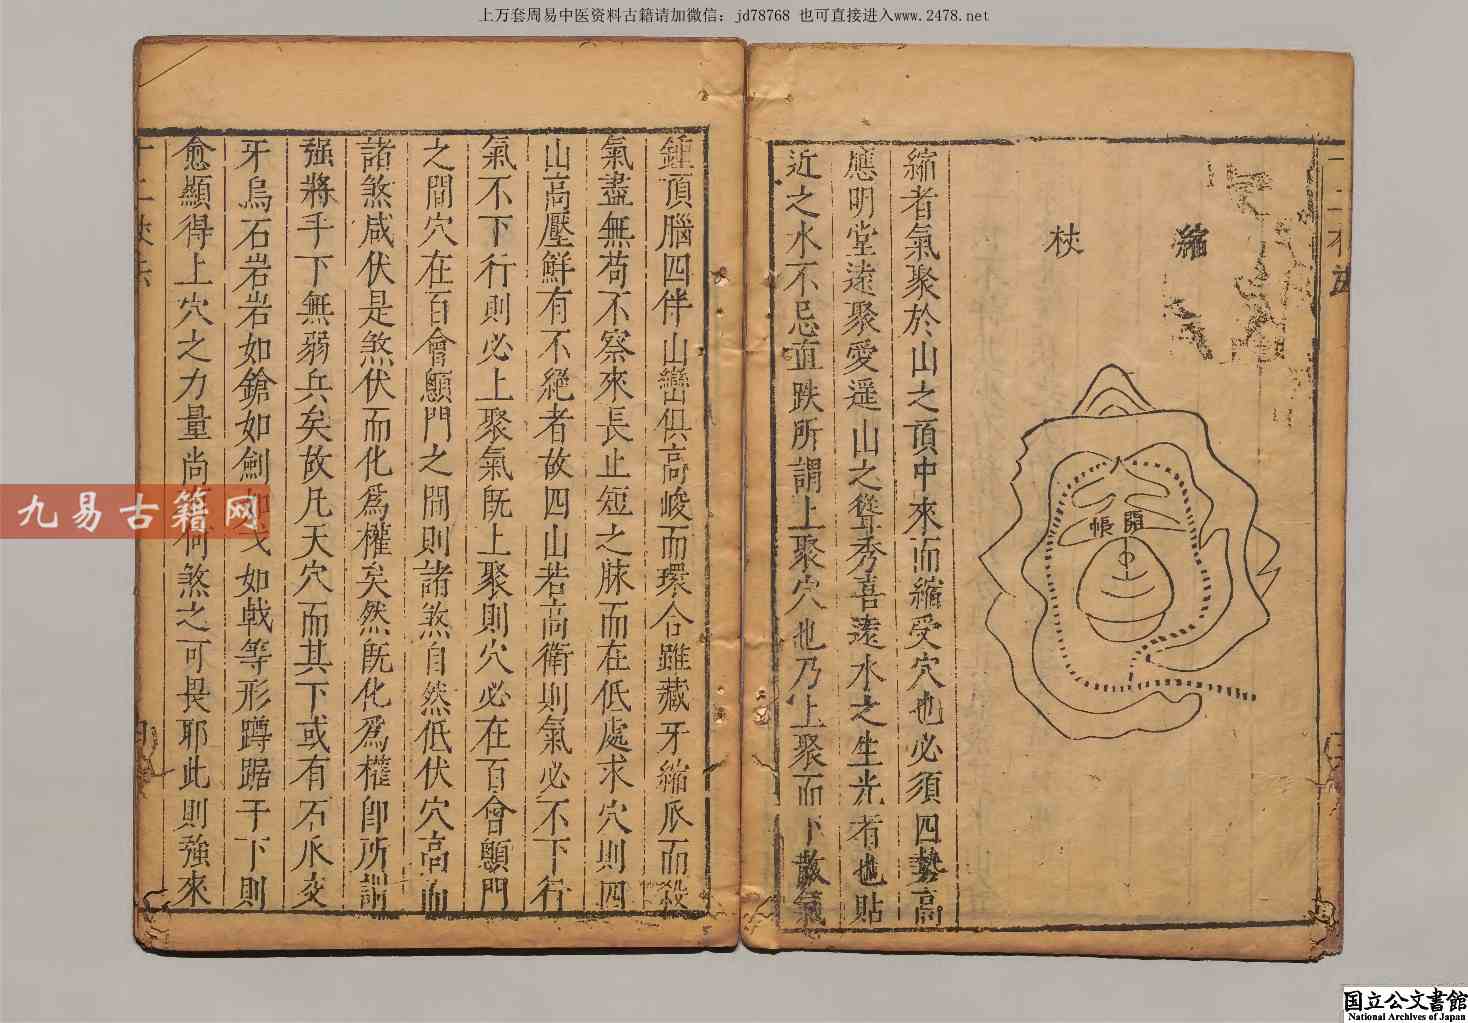 上万套周易中医资料古籍请加微信：jd78768 也可直接进入www.2478.net
縮杖
開帳
縮者氣聚於山之頂中來而縮受穴也必須四勢高
應明堂遠聚愛遥山之聳秀喜遠水之生光者也貼
近之水不忌直跌所謂上聚穴也乃上聚而下散氣
鍾頂腦四伴山巒俱高峻而環合雖藏牙縮爪而殺
氣盡無苟不察來長止短之脉而在低處求穴則四
山高壓鮮有不絕者故四山若高衛則氣必不下行
氣不下行則必上聚氣旣上聚則穴必在百會顖門
之間穴在百會顖門之間則諸煞自然低伏穴高而
諸煞咸伏是煞伏而化爲權矣然旣化爲權卽所謂
强將手下無弱兵矣故凡天穴而其下或有石爪交
牙烏石岩岩如鎗如劍如戈如戟等形蹲踞于下則
愈顯得上穴之力量尚何煞之可畏耶此則強來
九易古籍网
国立公文書館
National Archives of Japan